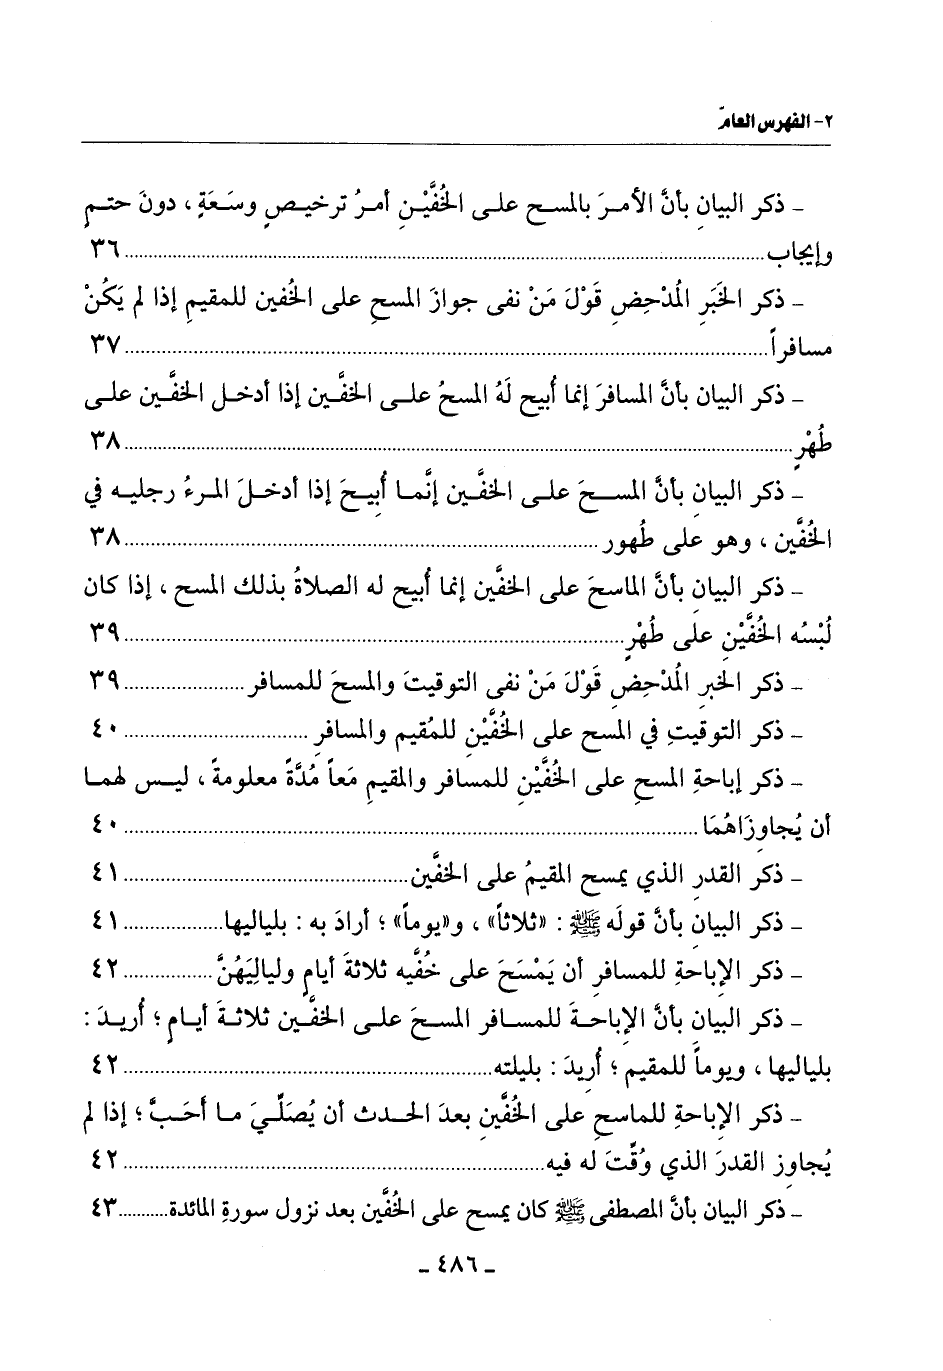 ٢- الفهرس العامّ
– ذكر البيانِ بأنَّ الأمـرَ بالمسـح علـى الخُفَّيْـنِ أمـرُ ترخيـصٍ وسَـعَةٍ ، دونَ حتـمٍ
وإيجاب ........ ٣٦
– ذكر الخَبَرِ المُدْحِضِ قَوْلَ مَنْ نفى جوازَ المسحِ على الخُفين للمقيمِ إذا لم يَكُنْ
مسافراً ........ ٣٧
– ذكر البيان بأنَّ المسافرَ إنما أُبيح لَهُ المسحُ علـى الخفَّـين إذا أدخـل الخفَّـين علـى
طُهْرٍ ........ ٣٨
– ذكر البيان بأنَّ المسـحَ علـى الخفَّـين إنَّمـا أُبيـحَ إذا أدخـلَ المـرءُ رجليـه في
الخُفَّين ، وهو على طُهور ........ ٣٨
– ذكر البيانِ بأنَّ الماسحَ على الخفَّين إنما أُبيح له الصلاةُ بذلك المسح ، إذا كان
لُبْسُه الخُفَّيْنِ على طُهْرٍ ........ ٣٩
– ذكر الخبرِ المُدْحِضِ قَوْلَ مَنْ نفى التوقيتَ والمسحَ للمسافر ........ ٣٩
– ذكر التوقيتِ في المسح على الخُفَّيْنِ للمُقيم والمسافرِ ........ ٤٠
– ذكر إباحةِ المسحِ على الخُفَّيْنِ للمسافر والمقيمِ مَعاً مُدَّةً معلومةً ، ليـس لهمـا
أن يُجاوِزَاهُمَا ........ ٤٠
– ذكر القدر الذي يمسح المقيمُ على الخفَّين ........ ٤١
– ذكر البيان بأنَّ قولَه ﷺ : «ثلاثاً» ، و«يوماً» ؛ أرادَ به : بلياليها ........ ٤١
– ذكر الإباحةِ للمسافرِ أن يَمْسَحَ على خُفَّيه ثلاثةَ أيامٍ ولياليَهُنَّ ........ ٤٢
– ذكر البيان بأنَّ الإباحـةَ للمسـافر المسـحَ علـى الخفَّـين ثلاثـةَ أيـامٍ ؛ أُريـدَ :
بلياليها ، ويوماً للمقيم ؛ أُريدَ : بليلته ........ ٤٢
– ذكر الإباحةِ للماسحِ على الخُفَّينِ بعدَ الحـدث أن يُصَلِّـيَ مـا أحَـبَّ ؛ إذا لم
يُجاوِز القدرَ الذي وُقِّتَ له فيه ........ ٤٢
– ذكر البيان بأنَّ المصطفى ﷺ كان يمسح على الخُفَّين بعد نزول سورةِ المائدة ........ ٤٣
– ٤٨٦ –